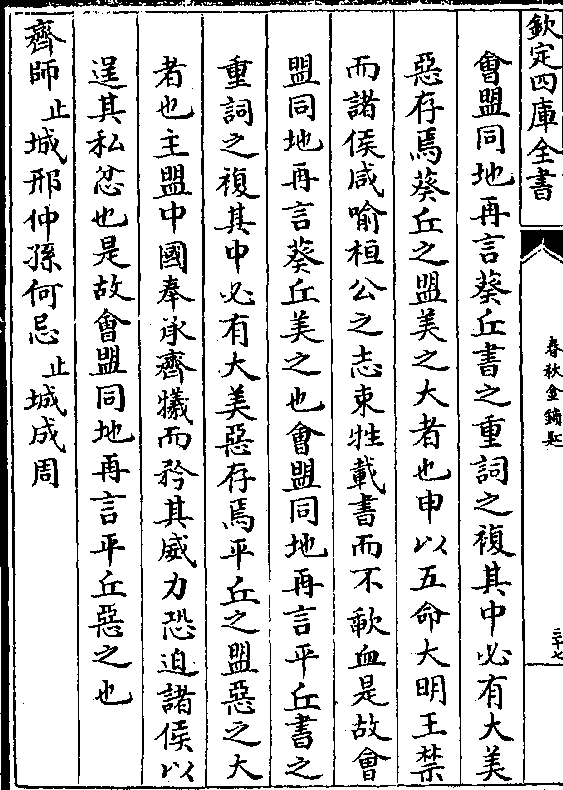 欽定四庫全書
春秋金鎖匙
三十七
會盟同地再言葵丘書之重詞之複其中必有大美
惡存焉葵丘之盟美之大者也申以五命大明王禁
而諸侯咸喻桓公之志束牲載書而不歃血是故會
盟同地再言葵丘美之也會盟同地再言平丘書之
重詞之複其中必有大美惡存焉平丘之盟惡之大
者也主盟中國奉承齊犧而矜其威力恐迫諸侯以
逞其私忿也是故會盟同地再言平丘惡之也
齊師止城邢仲孫何忌止城成周